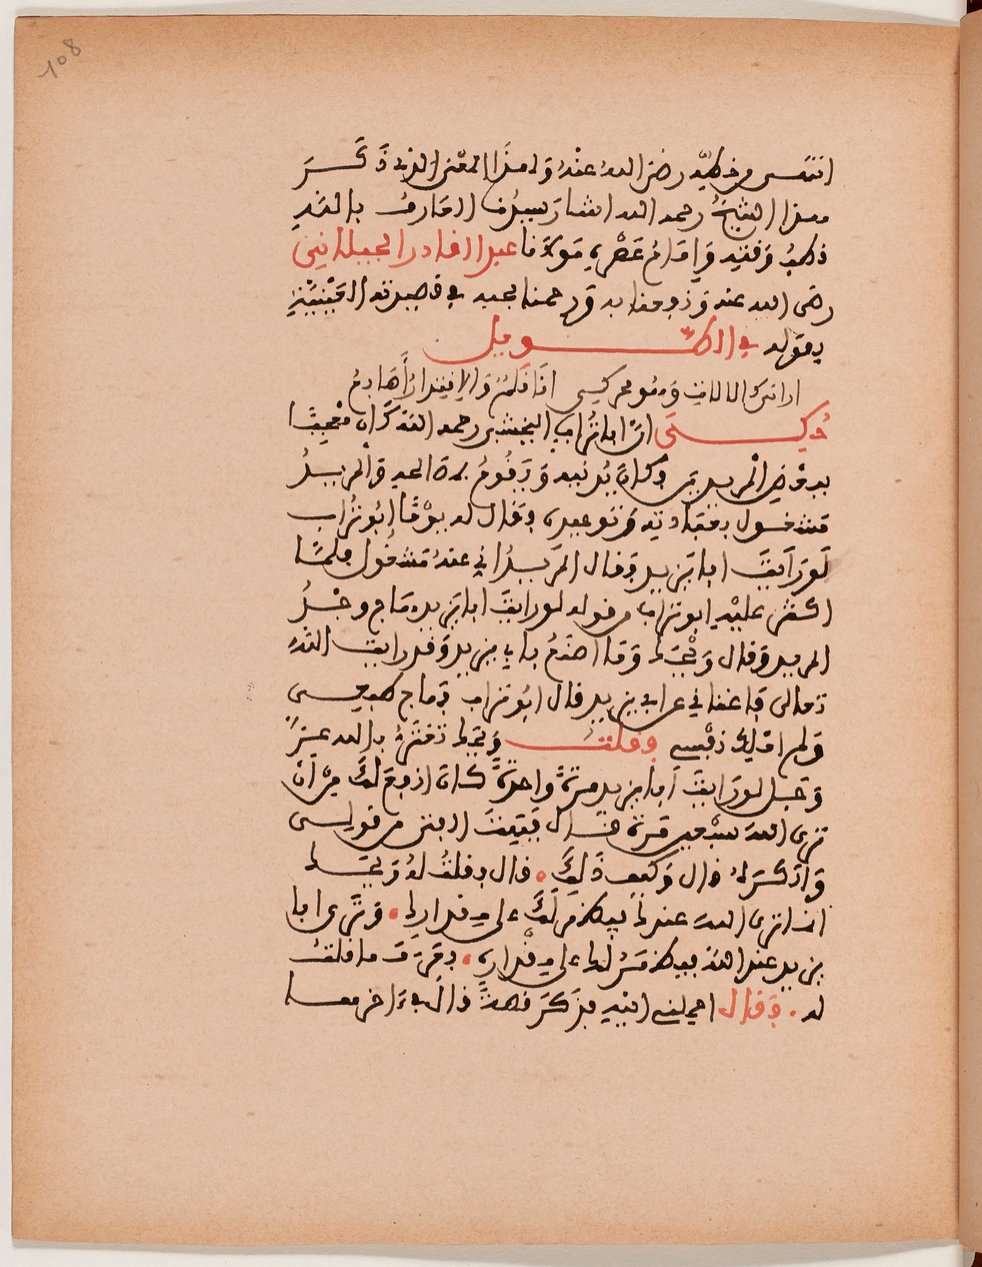 108
انتهى من خطه رضي الله عنه ولهذا المعنى الذي ذكر
هذا الشيخ رحمه الله اشار سيدنا العارف بالله
قطب وقته وامام عصره مولانا عبد القادر الجيلاني
رضي الله عنه ونفعنا به ورحمنا بحبه في قصيدته العينية
بقوله في الطويل
اراني كالالات وهو محركي انا قلم والاقتدار أصابع
حكي أن ابا تراب النخشبي رحمه الله كان معجبا
ببعض المريدين وكان يدنيه ويقوم بمصالحه والمريد
مشغول بعبادته وتوحيده فقال له يوما ابو تراب
لو رأيت ابا يزيد فقال المريد اني عنه مشغول فلما
اكثر عليه ابو تراب من قوله لو رايت ابا يزيد هاج وجد
المريد وقال ويحك وما اصنع بابي يزيد وقد رايت الله
تعالى فاغناني عن ابي يزيد قال ابو تراب فهاج طبعي
ولم املك نفسي فقلت ويحك تغتر بالله عز
وجل لو رايت أبا يزيد مرة واحدة كان انفع لك من أن
ترى الله سبعين مرة قال فبهت الفتى من قولي
وانكره قال وكيف ذلك قال فقلت له ويحك
انما ترى الله عندك فيظهر لك على مقدارك وترى ابا
يزيد عند الله فيظهر لك على مقداره فعرف ما قلت
له وقال احملني اليه فذكر قصة قال في اخرها